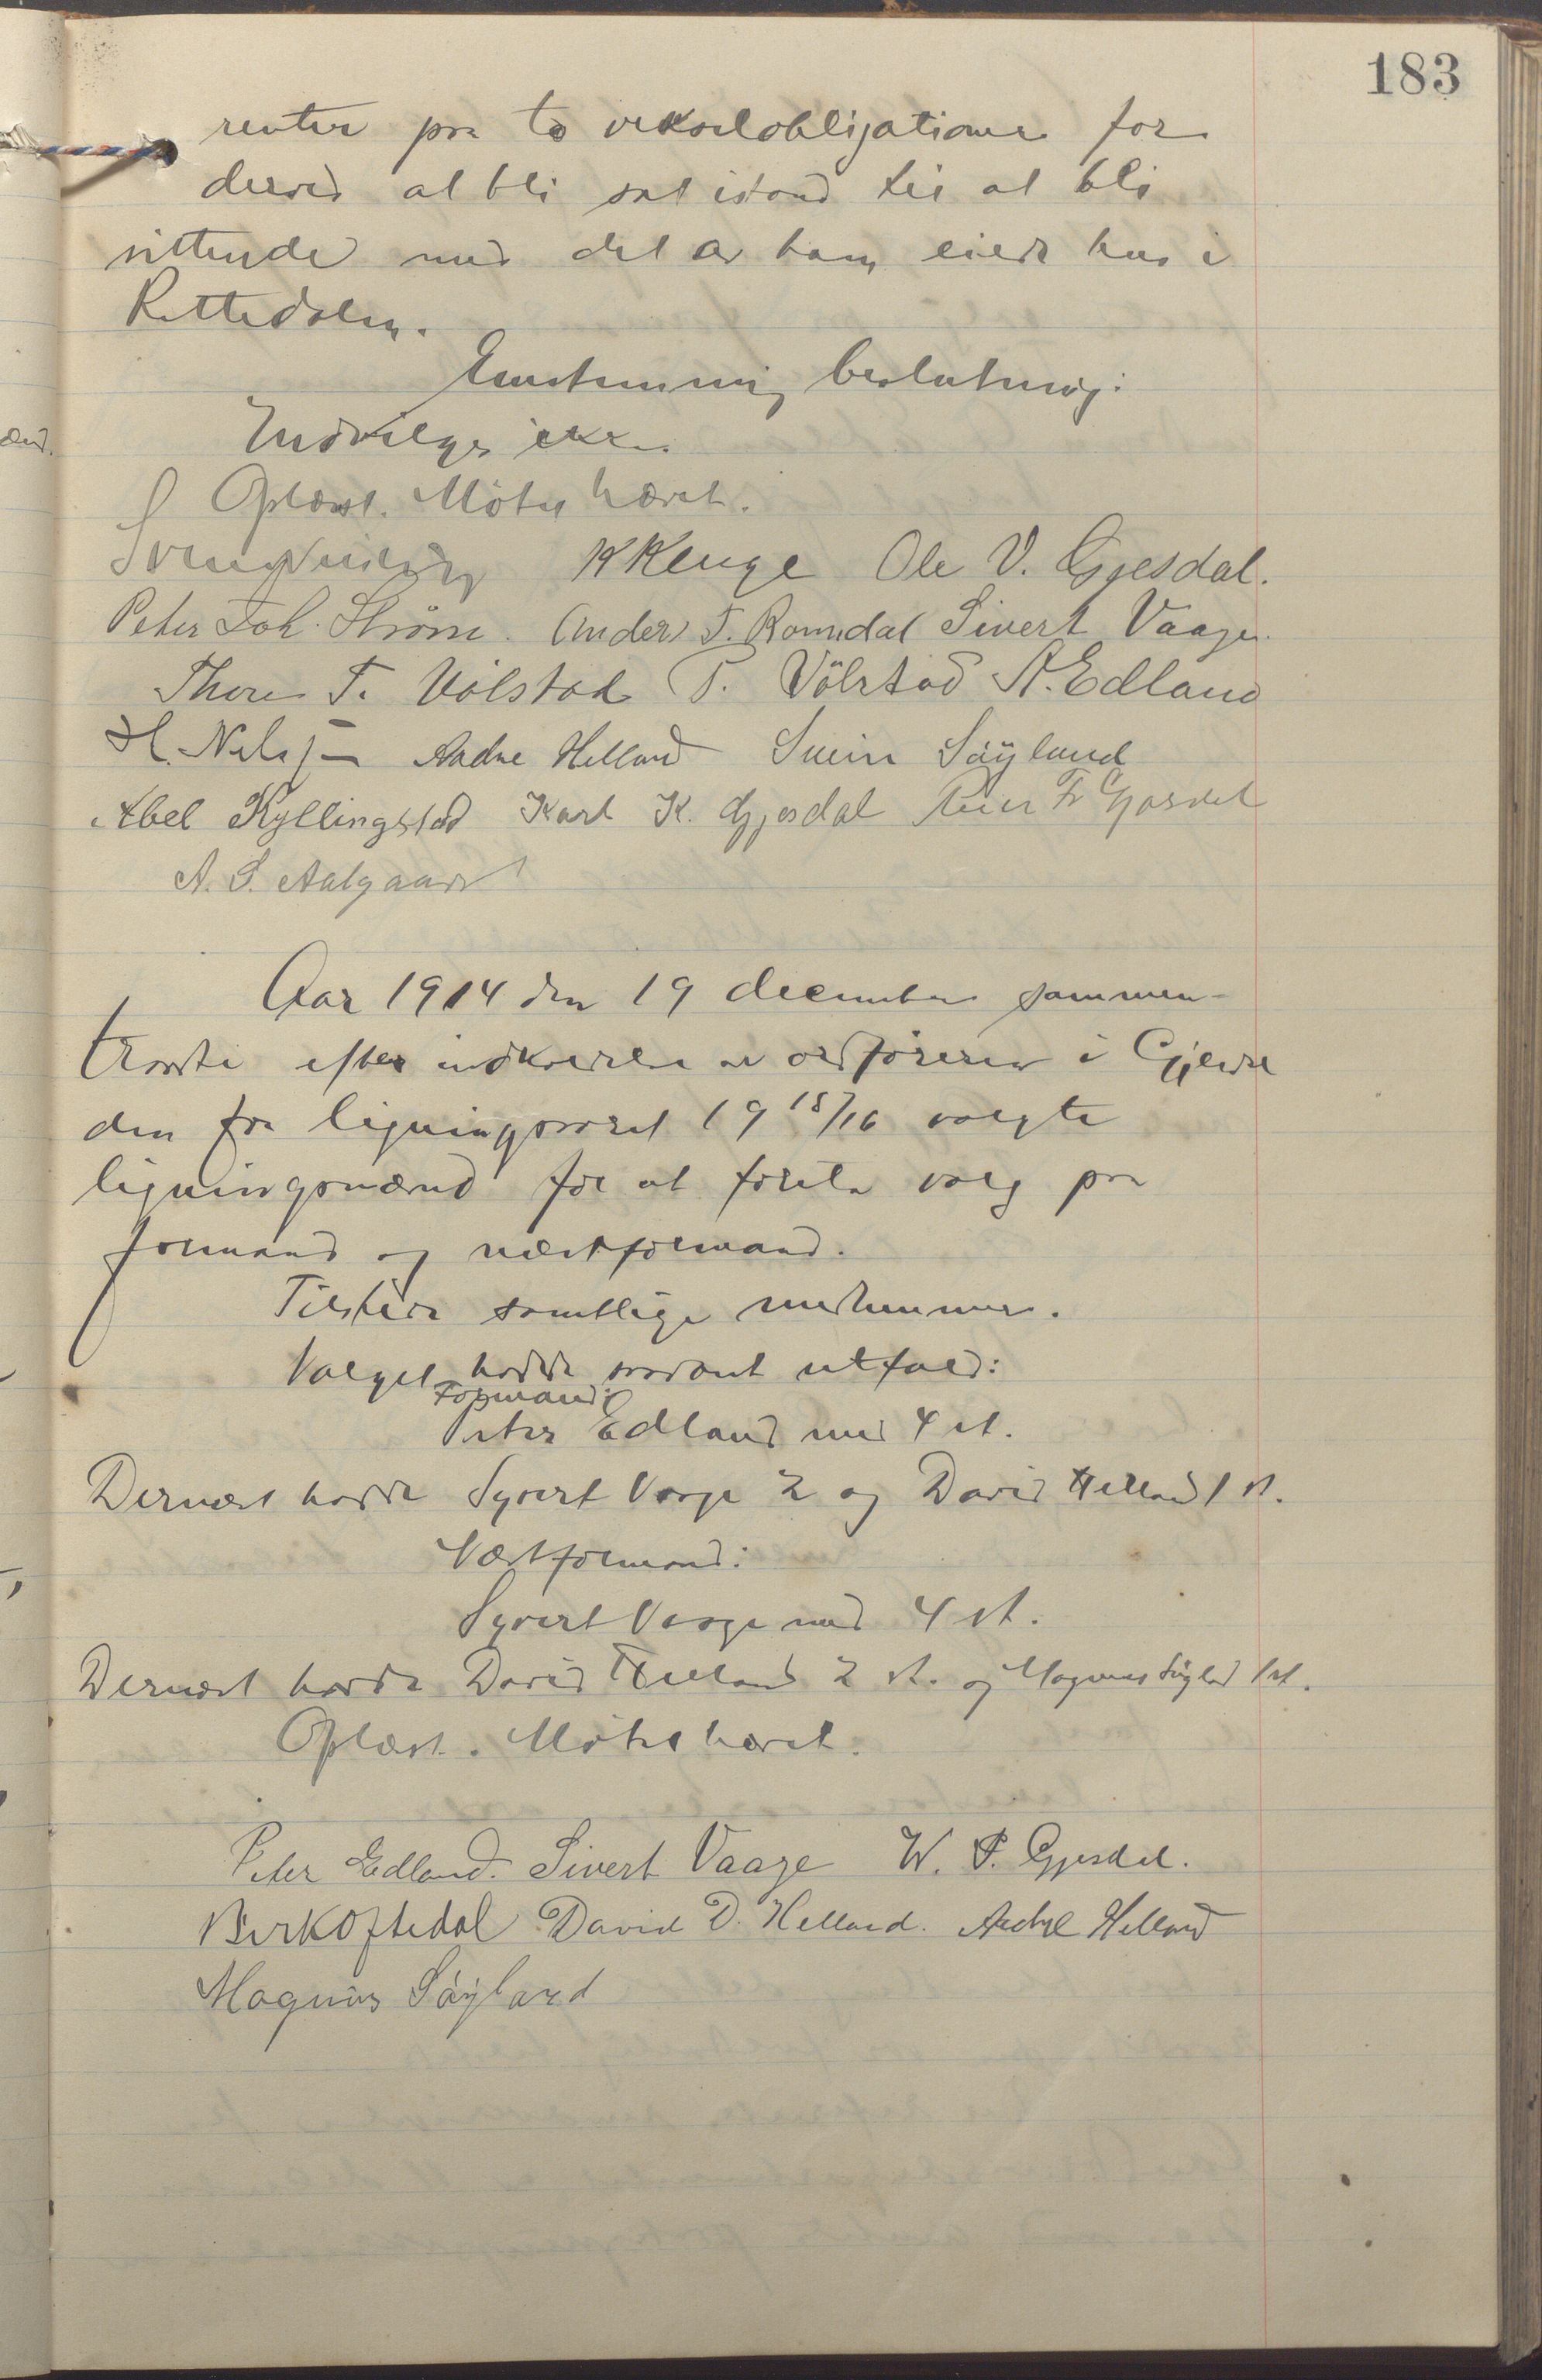 183
renter paa to vekselobligationer for
derved at bli sat istand til at bli
sittende med det av ham eiede hus i
Rettedalen.
Enstemmig beslutning:
Indvilges ikke.
Oplæst. Møtet hævet.
K Kluge Ole V. Gjesdal.
Peter Joh. Strøm. Anders T. Romsdal Sivert Vaage.
Thore T. Vølstad T. Vølstad A. Edland
H. Nilssen Aadne Helland Svein Søyland
Abel Kyllingstad Karl K. Gjesdal Peter Fr Gjesdal
A. S. Aalgaard
Aar 1914 den 19 december sammen-
traadte efter indkaldelse av ordføreren i Gjesdal
den for ligningsaaret 19 15/16 valgte
ligningsnævnd for at foreta valg paa
formand og næstformand.
Tilstede samtlige medlemmer.
Valget hadde saadant utfald:
Formand:
Peter Edland med 4 st.
Dernæst hadde Syvert Vaage 2 og David Helland 1 st.
Næstformand:
Syvert Vaage med 4 st.
Dernæst hadde David Helland 2 st. og Magnus Søyland 1 st.
Oplæst. Møtet hævet.
Peter Edland. Sivert Vaage W. P. Gjesdal.
Birk Oftedal David D. Helland. Aadne Helland
Magnus Søyland